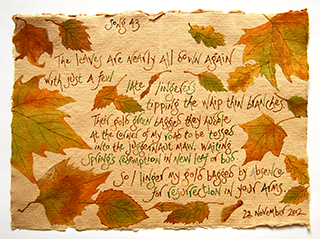 Song 43
The leaves are nearly all down again
with just a few
late lingerers
tipping the whip thin branches.
Their gold green bagged they huddle
at the corner of my road to be tossed
into the juggernaut maw. Waiting
spring's redemption in new leaf or bud.
So I linger my gold bagged by absence
for resurrection in your arms.
22 November 2012